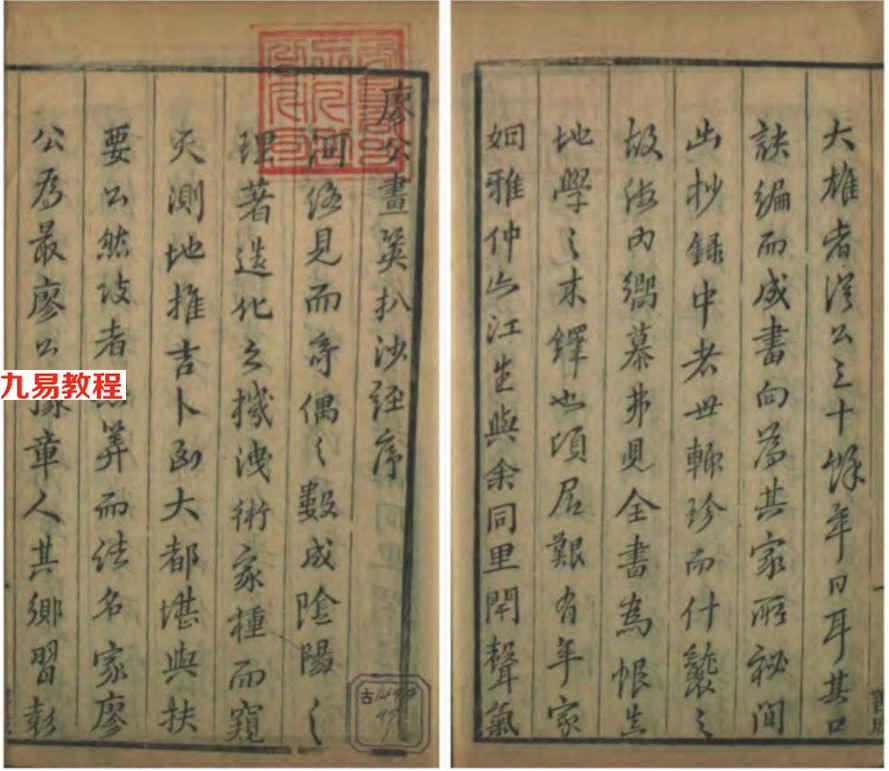 廖公畫筴扒沙經序
河洛見而奇偶之數成陰陽之
理著造化之機洩術家種而窺
天測地推吉卜凶大都堪輿扶
要然技者而名家廖
公為最廖公章人其鄉習彰
大雄者淂公三十餘年日耳其口
訣編而成書向為其家所秘間
出抄録中者世輒珍而什襲之
故海内嚮慕弗見全書為恨
地學之木鐸也頃居艱有年家
姻雅仲山江生與余同里閈聲氣
九易教程
古